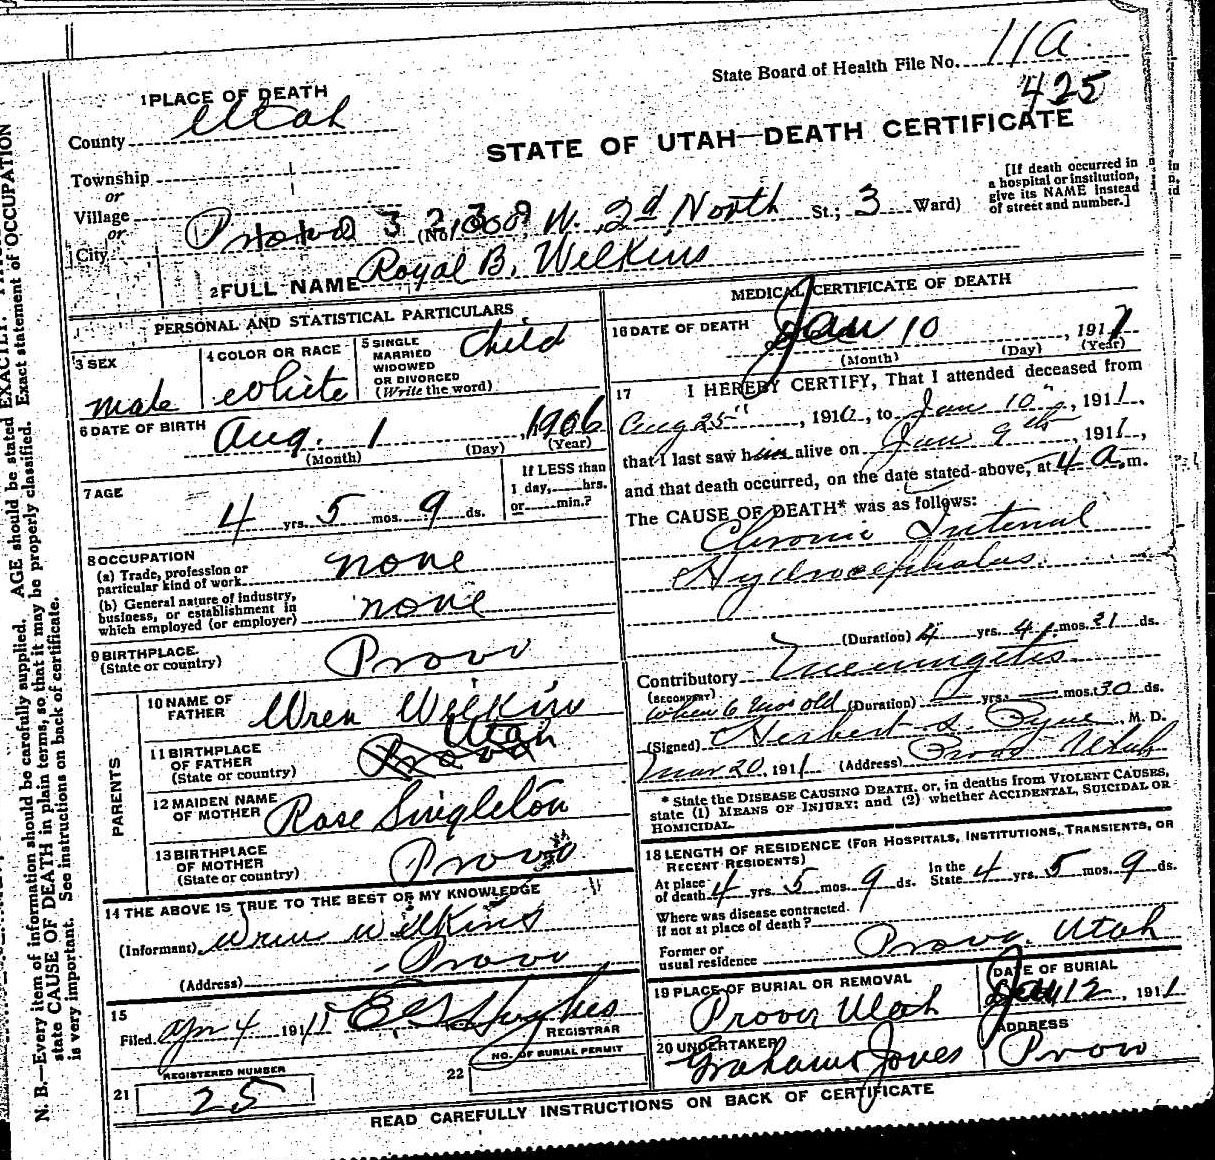 State Board of Health File No. 11a
425
1 PLACE OF DEATH
County Utah
STATE OF UTAH—DEATH CERTIFICATE
Township
or
Village
or
City Provo (No. 1008 W. 2d North St.; 3 Ward)
[If death occurred in
a hospital or institution,
give its NAME instead
of street and number.]
2 FULL NAME Royal B. Wilkins
PERSONAL AND STATISTICAL PARTICULARS
3 SEX
male
4 COLOR OR RACE
White
5 SINGLE
MARRIED
WIDOWED
OR DIVORCED
(Write the word)
Child
6 DATE OF BIRTH Aug. 1, 1906
(Month) (Day) (Year)
7 AGE
4 yrs. 5 mos. 9 ds.
If LESS than
1 day, hrs.
or min.?
8 OCCUPATION
(a) Trade, profession or
particular kind of work none
(b) General nature of industry,
business, or establishment in
which employed (or employer) none
9 BIRTHPLACE
(State or country) Provo
PARENTS
10 NAME OF
FATHER Wren Wilkins
11 BIRTHPLACE
OF FATHER
(State or country) Provo Utah
12 MAIDEN NAME
OF MOTHER Rose Singleton
13 BIRTHPLACE
OF MOTHER
(State or country) Provo
14 THE ABOVE IS TRUE TO THE BEST OF MY KNOWLEDGE
(Informant) Wren Wilkins
(Address) Provo
15
Filed Apr 4 1911
REGISTRAR
21 REGISTERED NUMBER
25
22 NO. OF BURIAL PERMIT
MEDICAL CERTIFICATE OF DEATH
16 DATE OF DEATH Jan 10, 1911
(Month) (Day) (Year)
17 I HEREBY CERTIFY, That I attended deceased from
Aug 25", 1910, to Jan 10", 1911,
that I last saw him alive on Jan 9th, 1911,
and that death occurred, on the date stated above, at 4 a.m.
The CAUSE OF DEATH* was as follows:
Chronic Internal
Hydrocephalus.
(Duration) 4 yrs. 4 mos. 21 ds.
Contributory Meningitis
(SECONDARY)
when 6 mos old (Duration) — yrs. — mos. 30 ds.
(Signed) Herbert S. Pyne, M. D.
Mar 20, 1911 (Address) Provo Utah
* State the DISEASE CAUSING DEATH, or, in deaths from VIOLENT CAUSES,
state (1) MEANS OF INJURY; and (2) whether ACCIDENTAL, SUICIDAL OR
HOMICIDAL.
18 LENGTH OF RESIDENCE (FOR HOSPITALS, INSTITUTIONS, TRANSIENTS, OR
RECENT RESIDENTS)
At place
of death 4 yrs. 5 mos. 9 ds. In the
State 4 yrs. 5 mos. 9 ds.
Where was disease contracted.
if not at place of death?
Former or
usual residence Provo, Utah
19 PLACE OF BURIAL OR REMOVAL
Provo Utah
DATE OF BURIAL
Jan 12, 1911
20 UNDERTAKER
Graham Jones
ADDRESS
Provo
READ CAREFULLY INSTRUCTIONS ON BACK OF CERTIFICATE
N. B.—Every item of information should be carefully supplied. AGE should be stated EXACTLY.
state CAUSE OF DEATH in plain terms, so that it may be properly classified. Exact statement of OCCUPATION
is very important. See instructions on back of certificate.